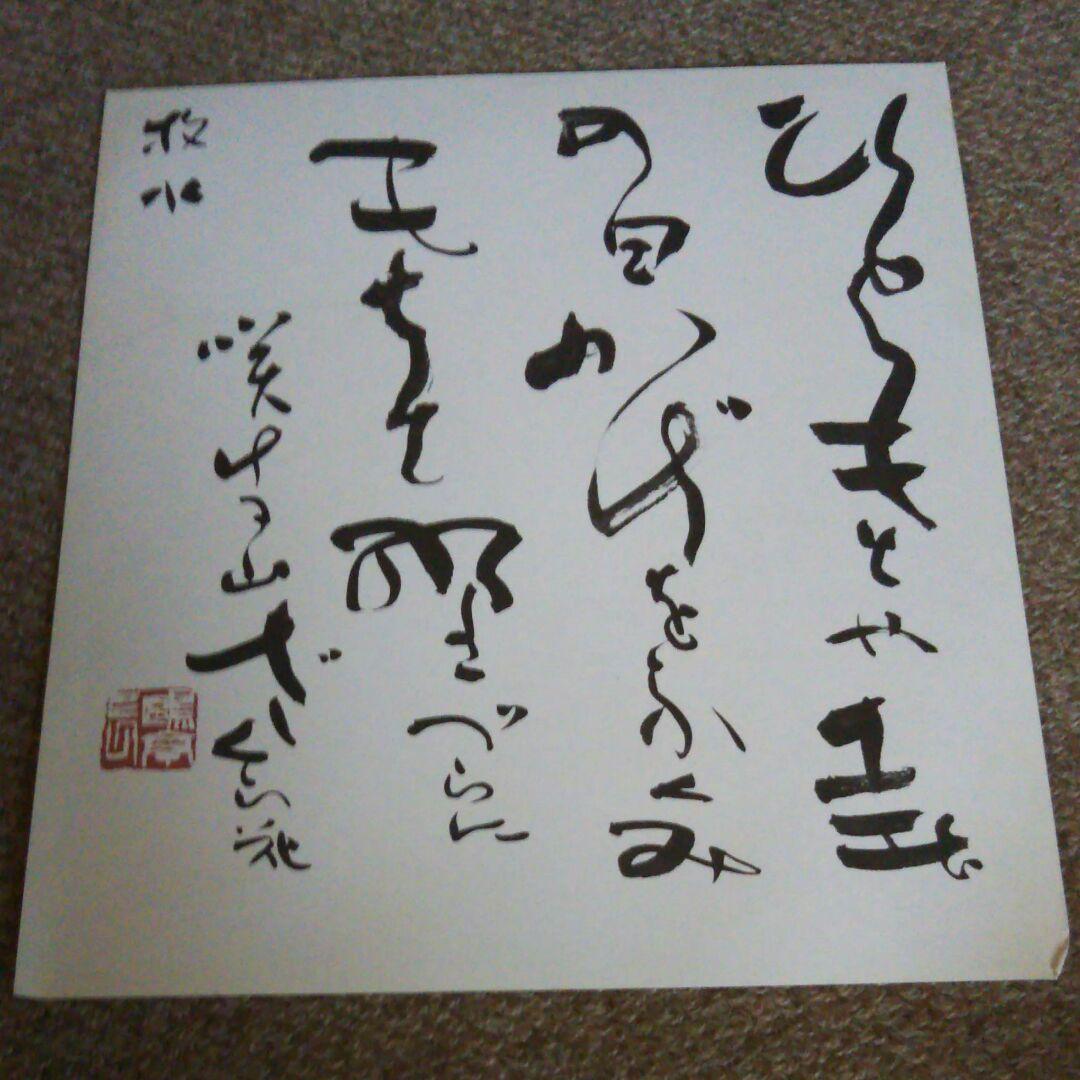 ひともとや春
の日かげをふくみ
もちて野づらに
咲ける山ざくら花
牧水